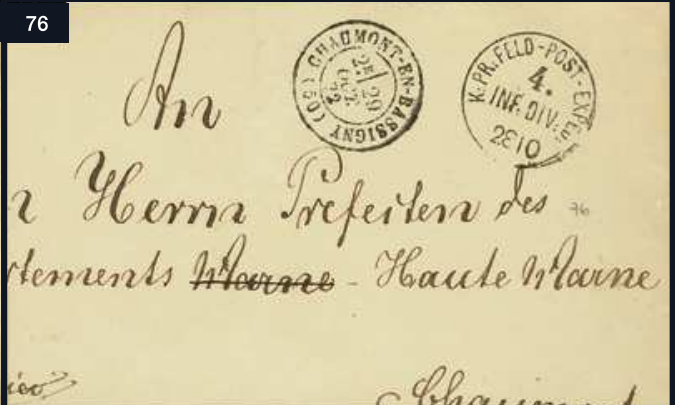 76
An
CHAUMONT-EN-BASSIGNY (50)
2E
29
OCT.
K. PR. FELD-POST-EXPED.
4.
INF. DIV.
28 10
Herrn Prefecten des
76
rtements Marne - Haute Marne
Chaumont